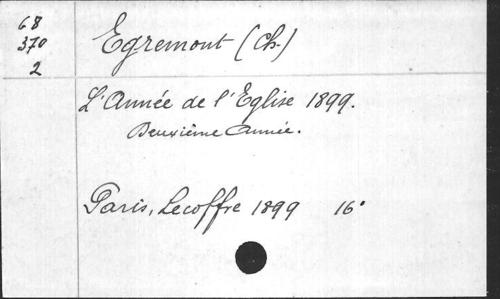 68
370
2
Egremont (Ch.)
L'Année de l'Eglise 1899.
Deuxième Année.
Paris, Lecoffre 1899 16°